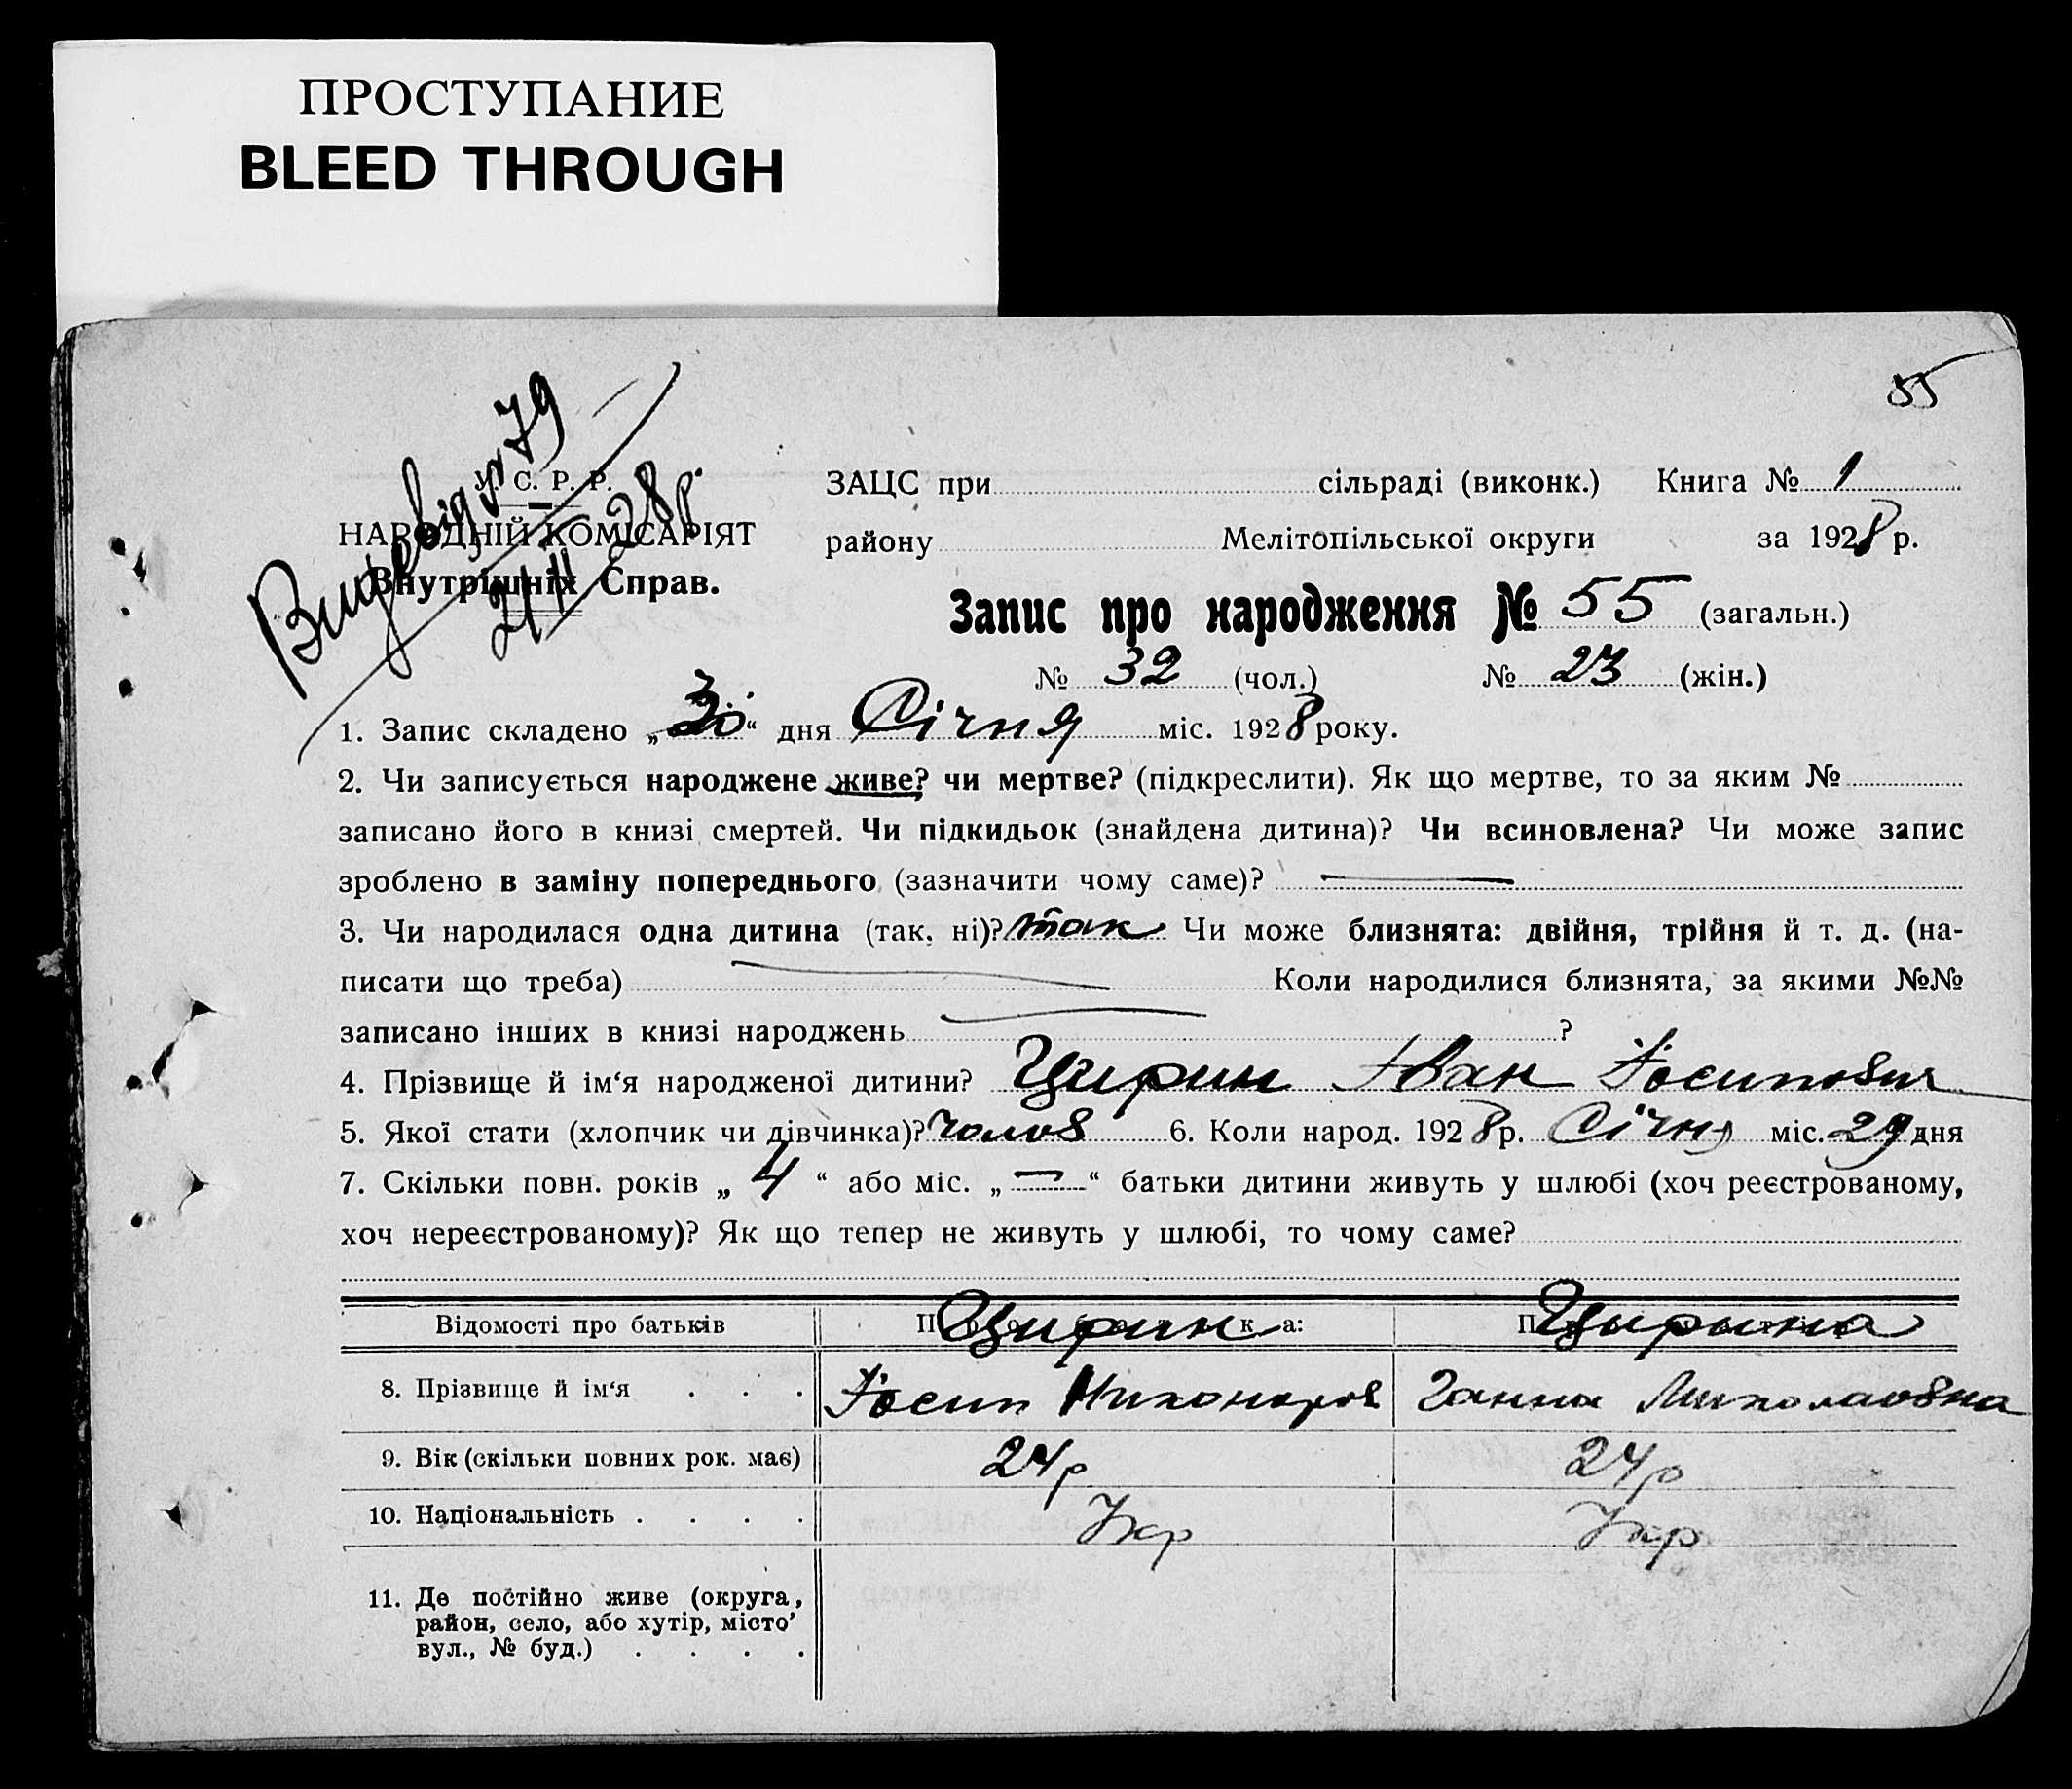 ПРОСТУПАНИЕ
BLEED THROUGH
55
79
28 р.
У. С. Р. Р.
НАРОДНІЙ КОМІСАРІЯТ
Внутрішніх Справ.
ЗАЦС при сільраді (виконк.) Книга № 1
району Мелітопільської округи за 1928 р.
Запис про народження № 55 (загальн.)
№ 32 (чол.) № 23 (жін.)
1. Запис складено „30“ дня Січня міс. 1928 року.
2. Чи записується народжене живе? чи мертве? (підкреслити). Як що мертве, то за яким №
записано його в книзі смертей. Чи підкидьок (знайдена дитина)? Чи всиновлена? Чи може запис
зроблено в заміну попереднього (зазначити чому саме)? —
3. Чи народилася одна дитина (так, ні)? так Чи може близнята: двійня, трійня й т. д. (на-
писати що треба) — Коли народилися близнята, за якими №№
записано інших в книзі народжень — ?
4. Прізвище й ім‘я народженої дитини? Цирин Іван Іосипович
5. Якої стати (хлопчик чи дівчинка)? чолов 6. Коли народ. 1928 р. Січня міс. 29 дня
7. Скільки повн. років „ 4 “ або міс. „ — “ батьки дитини живуть у шлюбі (хоч реєстрованому,
хоч нереєстрованому)? Як що тепер не живуть у шлюбі, то чому саме?
Відомості про батьків Цирин Цырина
8. Прізвище й ім‘я . . . Іосип Никоноров Ганна Миколаовна
9. Вік (скільки повних рок. має) 24 р 24 р
10. Національність . . . . Укр Укр
11. Де постійно живе (округа,
район, село, або хутір, місто’
вул., № буд.) . . . .